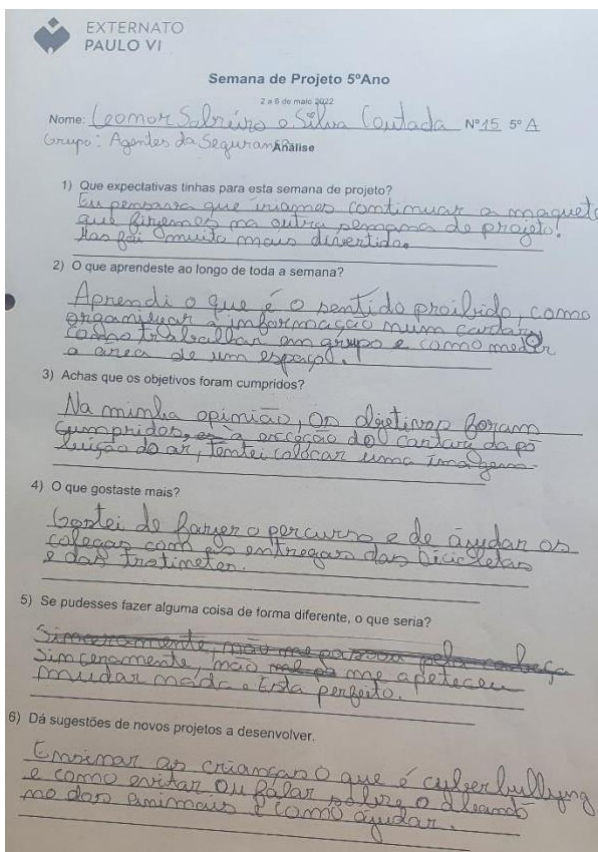 EXTERNATO
PAULO VI
Semana de Projeto 5ºAno
2 a 6 de maio 2022
Nome: Leonor Salreiro e Silva Coutada Nº15 5º A
Grupo: Agentes da Segurança
Análise
1) Que expectativas tinhas para esta semana de projeto?
Eu pensava que iriamos continuar a maquete
que fizemos na outra semana de projeto!
Mas foi muito mais divertido.
2) O que aprendeste ao longo de toda a semana?
Aprendi o que é o sentido proibido, como
organizar a informação num cartaz,
como trabalhar em grupo e como medir
a area de um espaço.
3) Achas que os objetivos foram cumpridos?
Na minha opinião, os objetivos foram
cumpridos, à exceção do cartaz da po
luição do ar, tentei colocar uma imagem.
4) O que gostaste mais?
Gostei de fazer o percurso e de ajudar os
colegas com as entregas das bicicletas
e das trotinetes.
5) Se pudesses fazer alguma coisa de forma diferente, o que seria?
Sinceramente, não me passou pela cabeça
Sinceramente, não me apeteceu
mudar nada. Está perfeito.
6) Dá sugestões de novos projetos a desenvolver.
Ensinar as crianças o que é cyberbullying
e como evitar ou falar sobre o
dos animais e como ajudar.